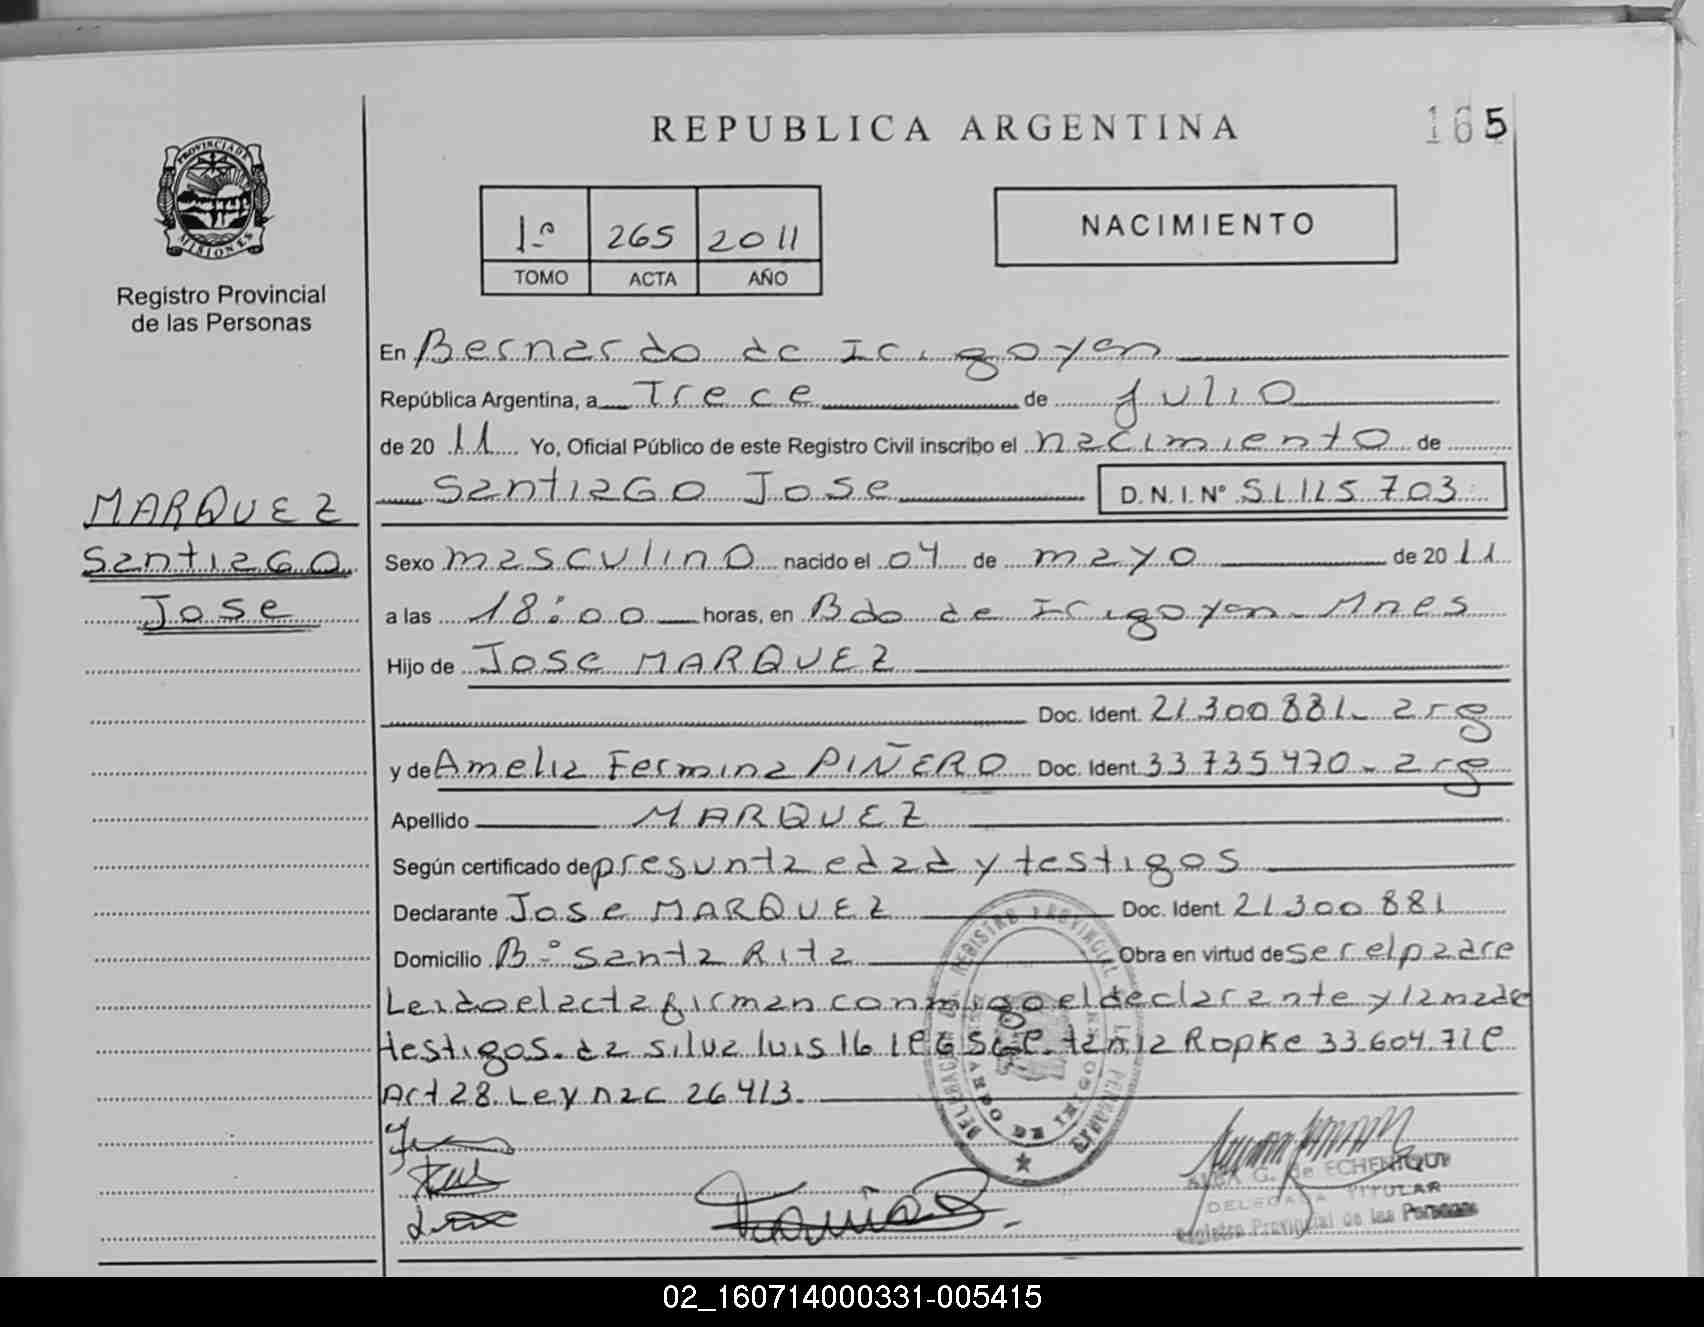 REPUBLICA ARGENTINA
165
PROVINCIA DE
MISIONES
Registro Provincial
de las Personas
1.º 265 2011
TOMO ACTA AÑO
NACIMIENTO
En Bernardo de Irigoyen
República Argentina, a Trece de Julio
de 20 11 Yo, Oficial Público de este Registro Civil inscribo el nacimiento de
Santiago Jose D.N.I.Nº 51.115.703
MARQUEZ
Santiago
Jose
Sexo masculino nacido el 04 de mayo de 20 11
a las 18:00 horas, en Bdo de Irigoyen - Mnes
Hijo de Jose MARQUEZ
Doc. Ident. 21.300.881- arg
y de Amelia Fermina PIÑERO Doc. Ident. 33.735.470- arg
Apellido MARQUEZ
Según certificado de presunta edad y testigos
Declarante Jose MARQUEZ Doc. Ident. 21.300.881
Domicilio Bº Santa Rita Obra en virtud de ser el padre
Leido el acta firman conmigo el declarante y la madre
testigos. da silva luis Tania Ropke 33.604.71
Art 28 Ley nac 26.413.
G. de ECHENIQUE
DELEGADA TITULAR
Registro Provincial de las Personas
02_160714000331-005415